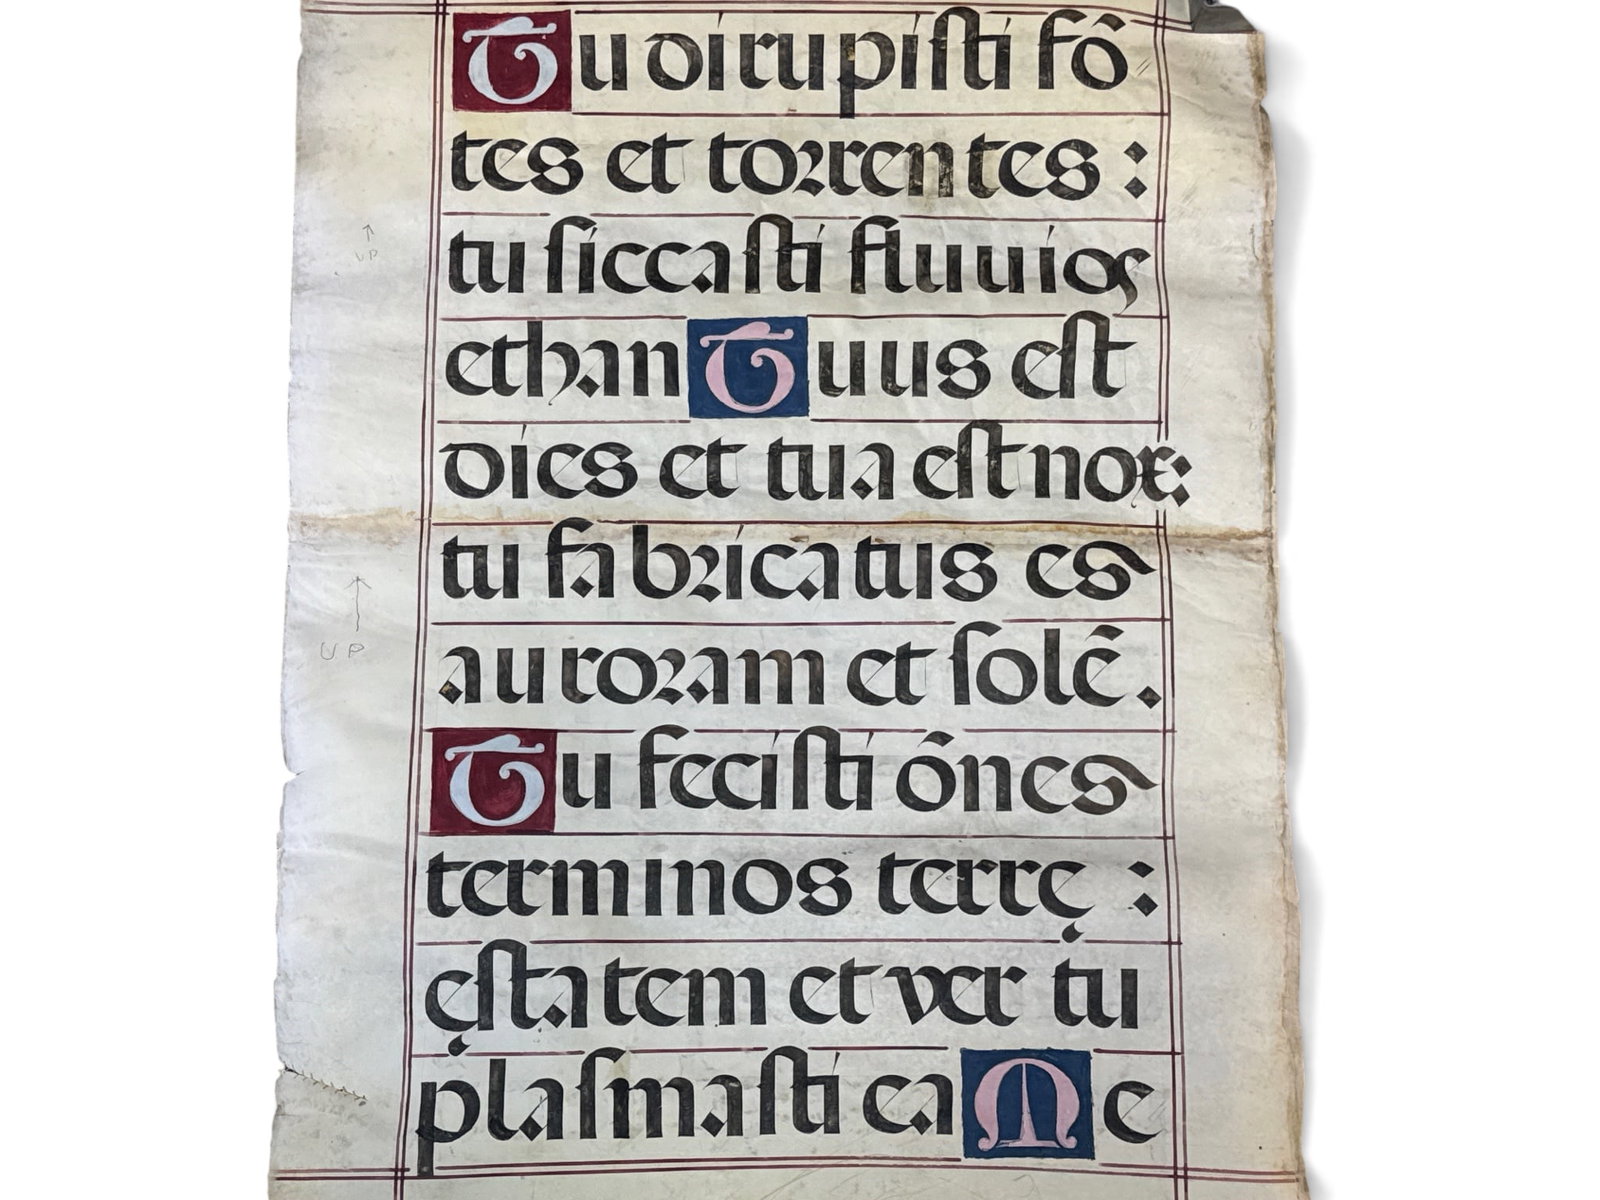 Tu dirupisti fō
tes et torrentes :
tu siccasti fluuios
ethan Tuus est
dies et tua est nox:
tu fabricatus es
auroram et solē.
Tu fecisti ōnes
terminos terrę :
ęstatem et ver tu
plasmasti ea Me
UP
UP